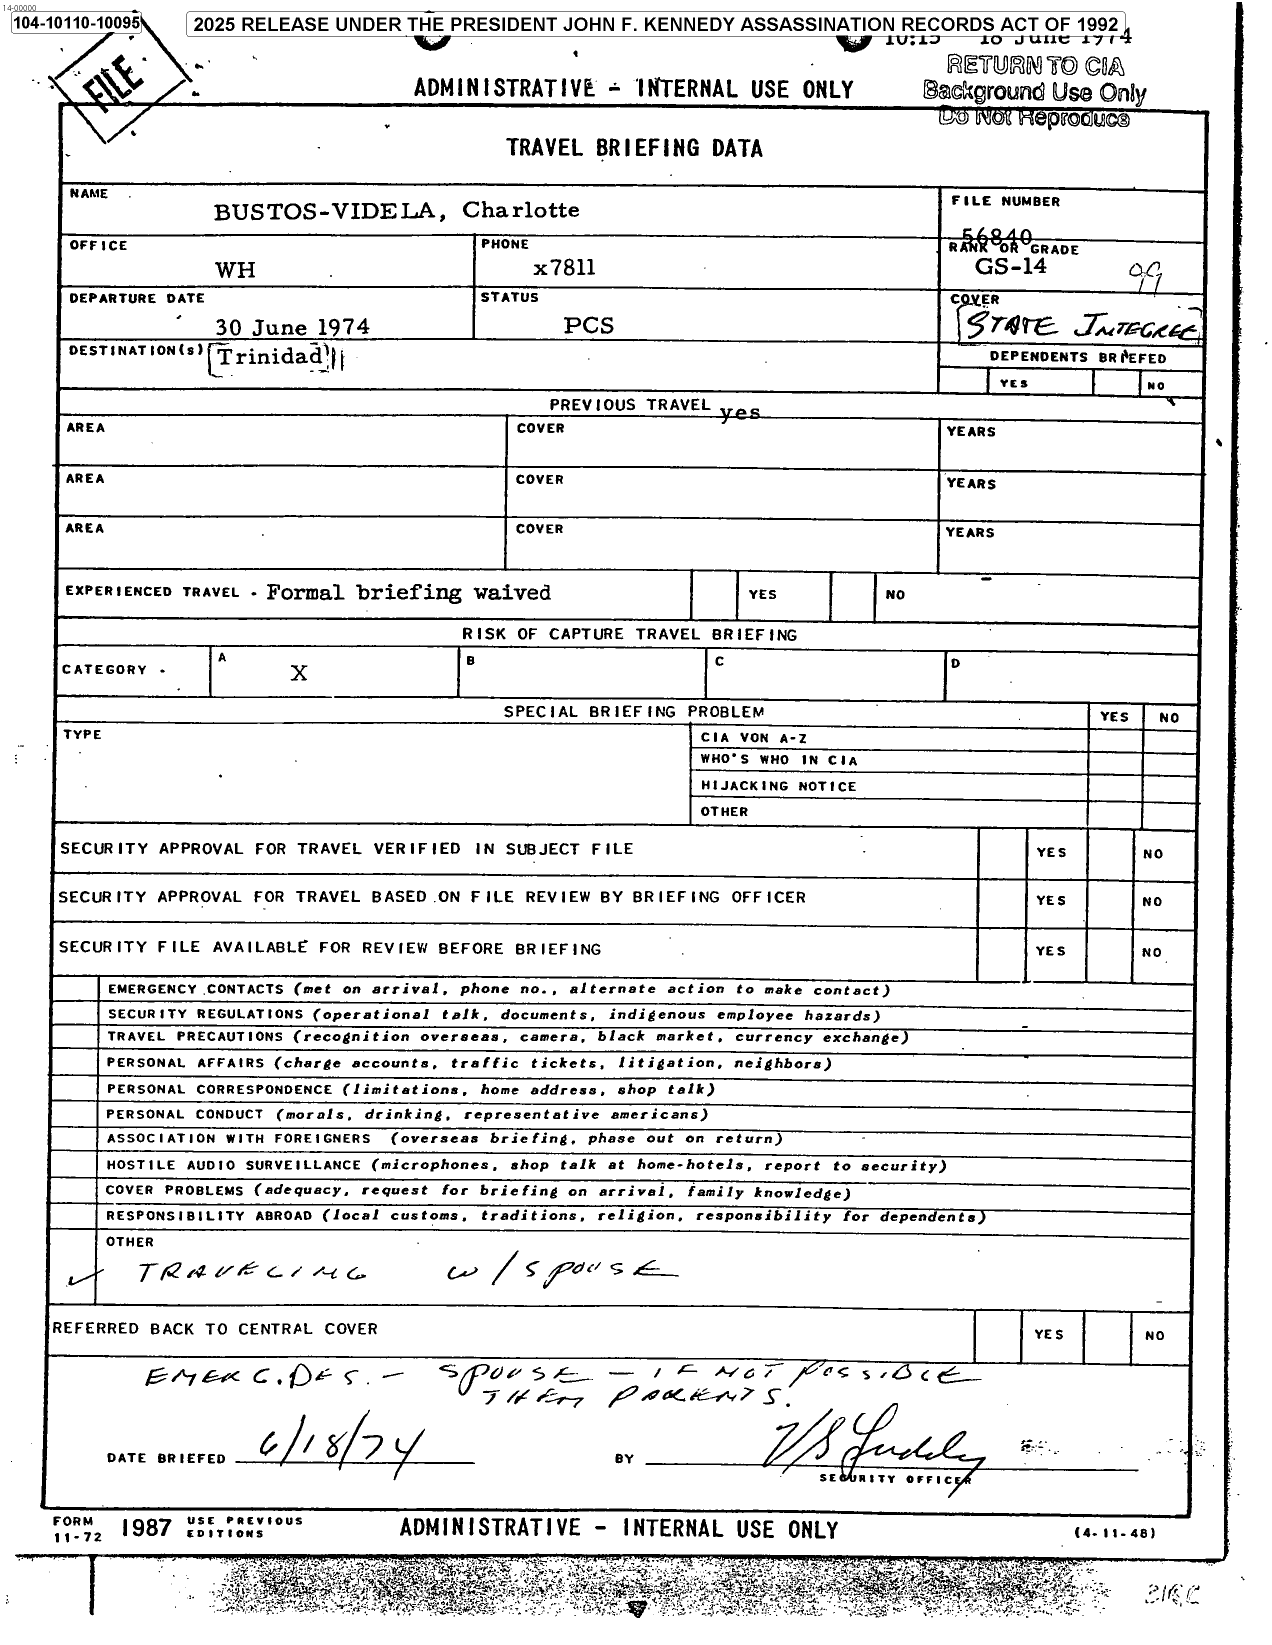 14-00000
104-10110-10095
2025 RELEASE UNDER THE PRESIDENT JOHN F. KENNEDY ASSASSINATION RECORDS ACT OF 1992
10:15 18 June 1974
FILE
RETURN TO CIA
Background Use Only
Do Not Reproduce
ADMINISTRATIVE - INTERNAL USE ONLY
TRAVEL BRIEFING DATA
NAME
BUSTOS-VIDELA, Charlotte
FILE NUMBER
56840
OFFICE
WH
PHONE
x7811
RANK OR GRADE
GS-14
DEPARTURE DATE
30 June 1974
STATUS
PCS
COVER
STATE INTEGREE
DESTINATION(s) Trinidad
DEPENDENTS BRIEFED
YES NO
PREVIOUS TRAVEL yes
AREA COVER YEARS
AREA COVER YEARS
AREA COVER YEARS
EXPERIENCED TRAVEL - Formal briefing waived YES NO
RISK OF CAPTURE TRAVEL BRIEFING
CATEGORY - A X B C D
SPECIAL BRIEFING PROBLEM YES NO
TYPE
CIA VON A-Z
WHO'S WHO IN CIA
HIJACKING NOTICE
OTHER
SECURITY APPROVAL FOR TRAVEL VERIFIED IN SUBJECT FILE YES NO
SECURITY APPROVAL FOR TRAVEL BASED ON FILE REVIEW BY BRIEFING OFFICER YES NO
SECURITY FILE AVAILABLE FOR REVIEW BEFORE BRIEFING YES NO
EMERGENCY CONTACTS (met on arrival, phone no., alternate action to make contact)
SECURITY REGULATIONS (operational talk, documents, indigenous employee hazards)
TRAVEL PRECAUTIONS (recognition overseas, camera, black market, currency exchange)
PERSONAL AFFAIRS (charge accounts, traffic tickets, litigation, neighbors)
PERSONAL CORRESPONDENCE (limitations, home address, shop talk)
PERSONAL CONDUCT (morals, drinking, representative americans)
ASSOCIATION WITH FOREIGNERS (overseas briefing, phase out on return)
HOSTILE AUDIO SURVEILLANCE (microphones, shop talk at home-hotels, report to security)
COVER PROBLEMS (adequacy, request for briefing on arrival, family knowledge)
RESPONSIBILITY ABROAD (local customs, traditions, religion, responsibility for dependents)
OTHER
✓ TRAVELING W/SPOUSE
REFERRED BACK TO CENTRAL COVER YES NO
EMERG. DES. - SPOUSE - IF NOT POSSIBLE
THEN PARENTS.
DATE BRIEFED 6/18/74 BY
SECURITY OFFICER
FORM 11-72 1987 USE PREVIOUS EDITIONS
ADMINISTRATIVE - INTERNAL USE ONLY
(4-11-48)